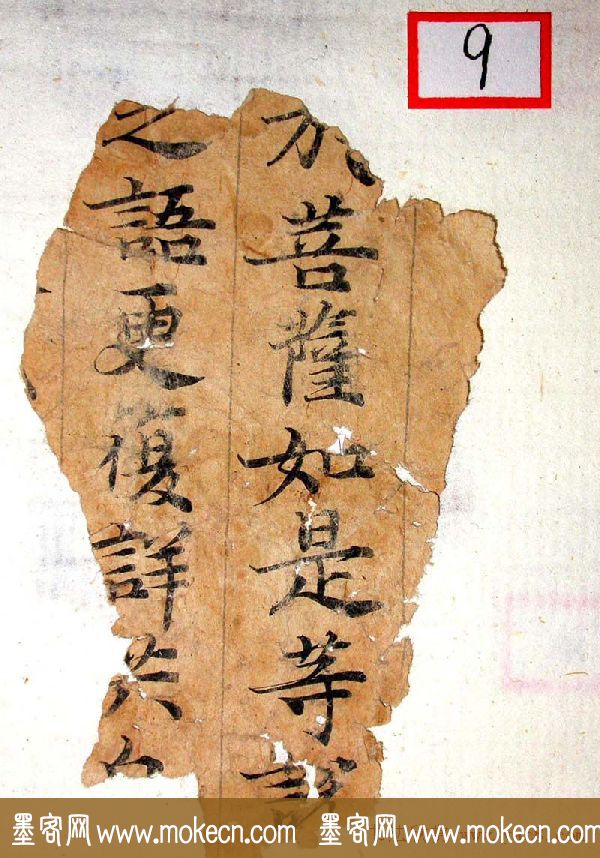 9
菩薩如是等
之語更復詳共
墨客网 www.mokecn.com 墨客网 www.mokecn.com